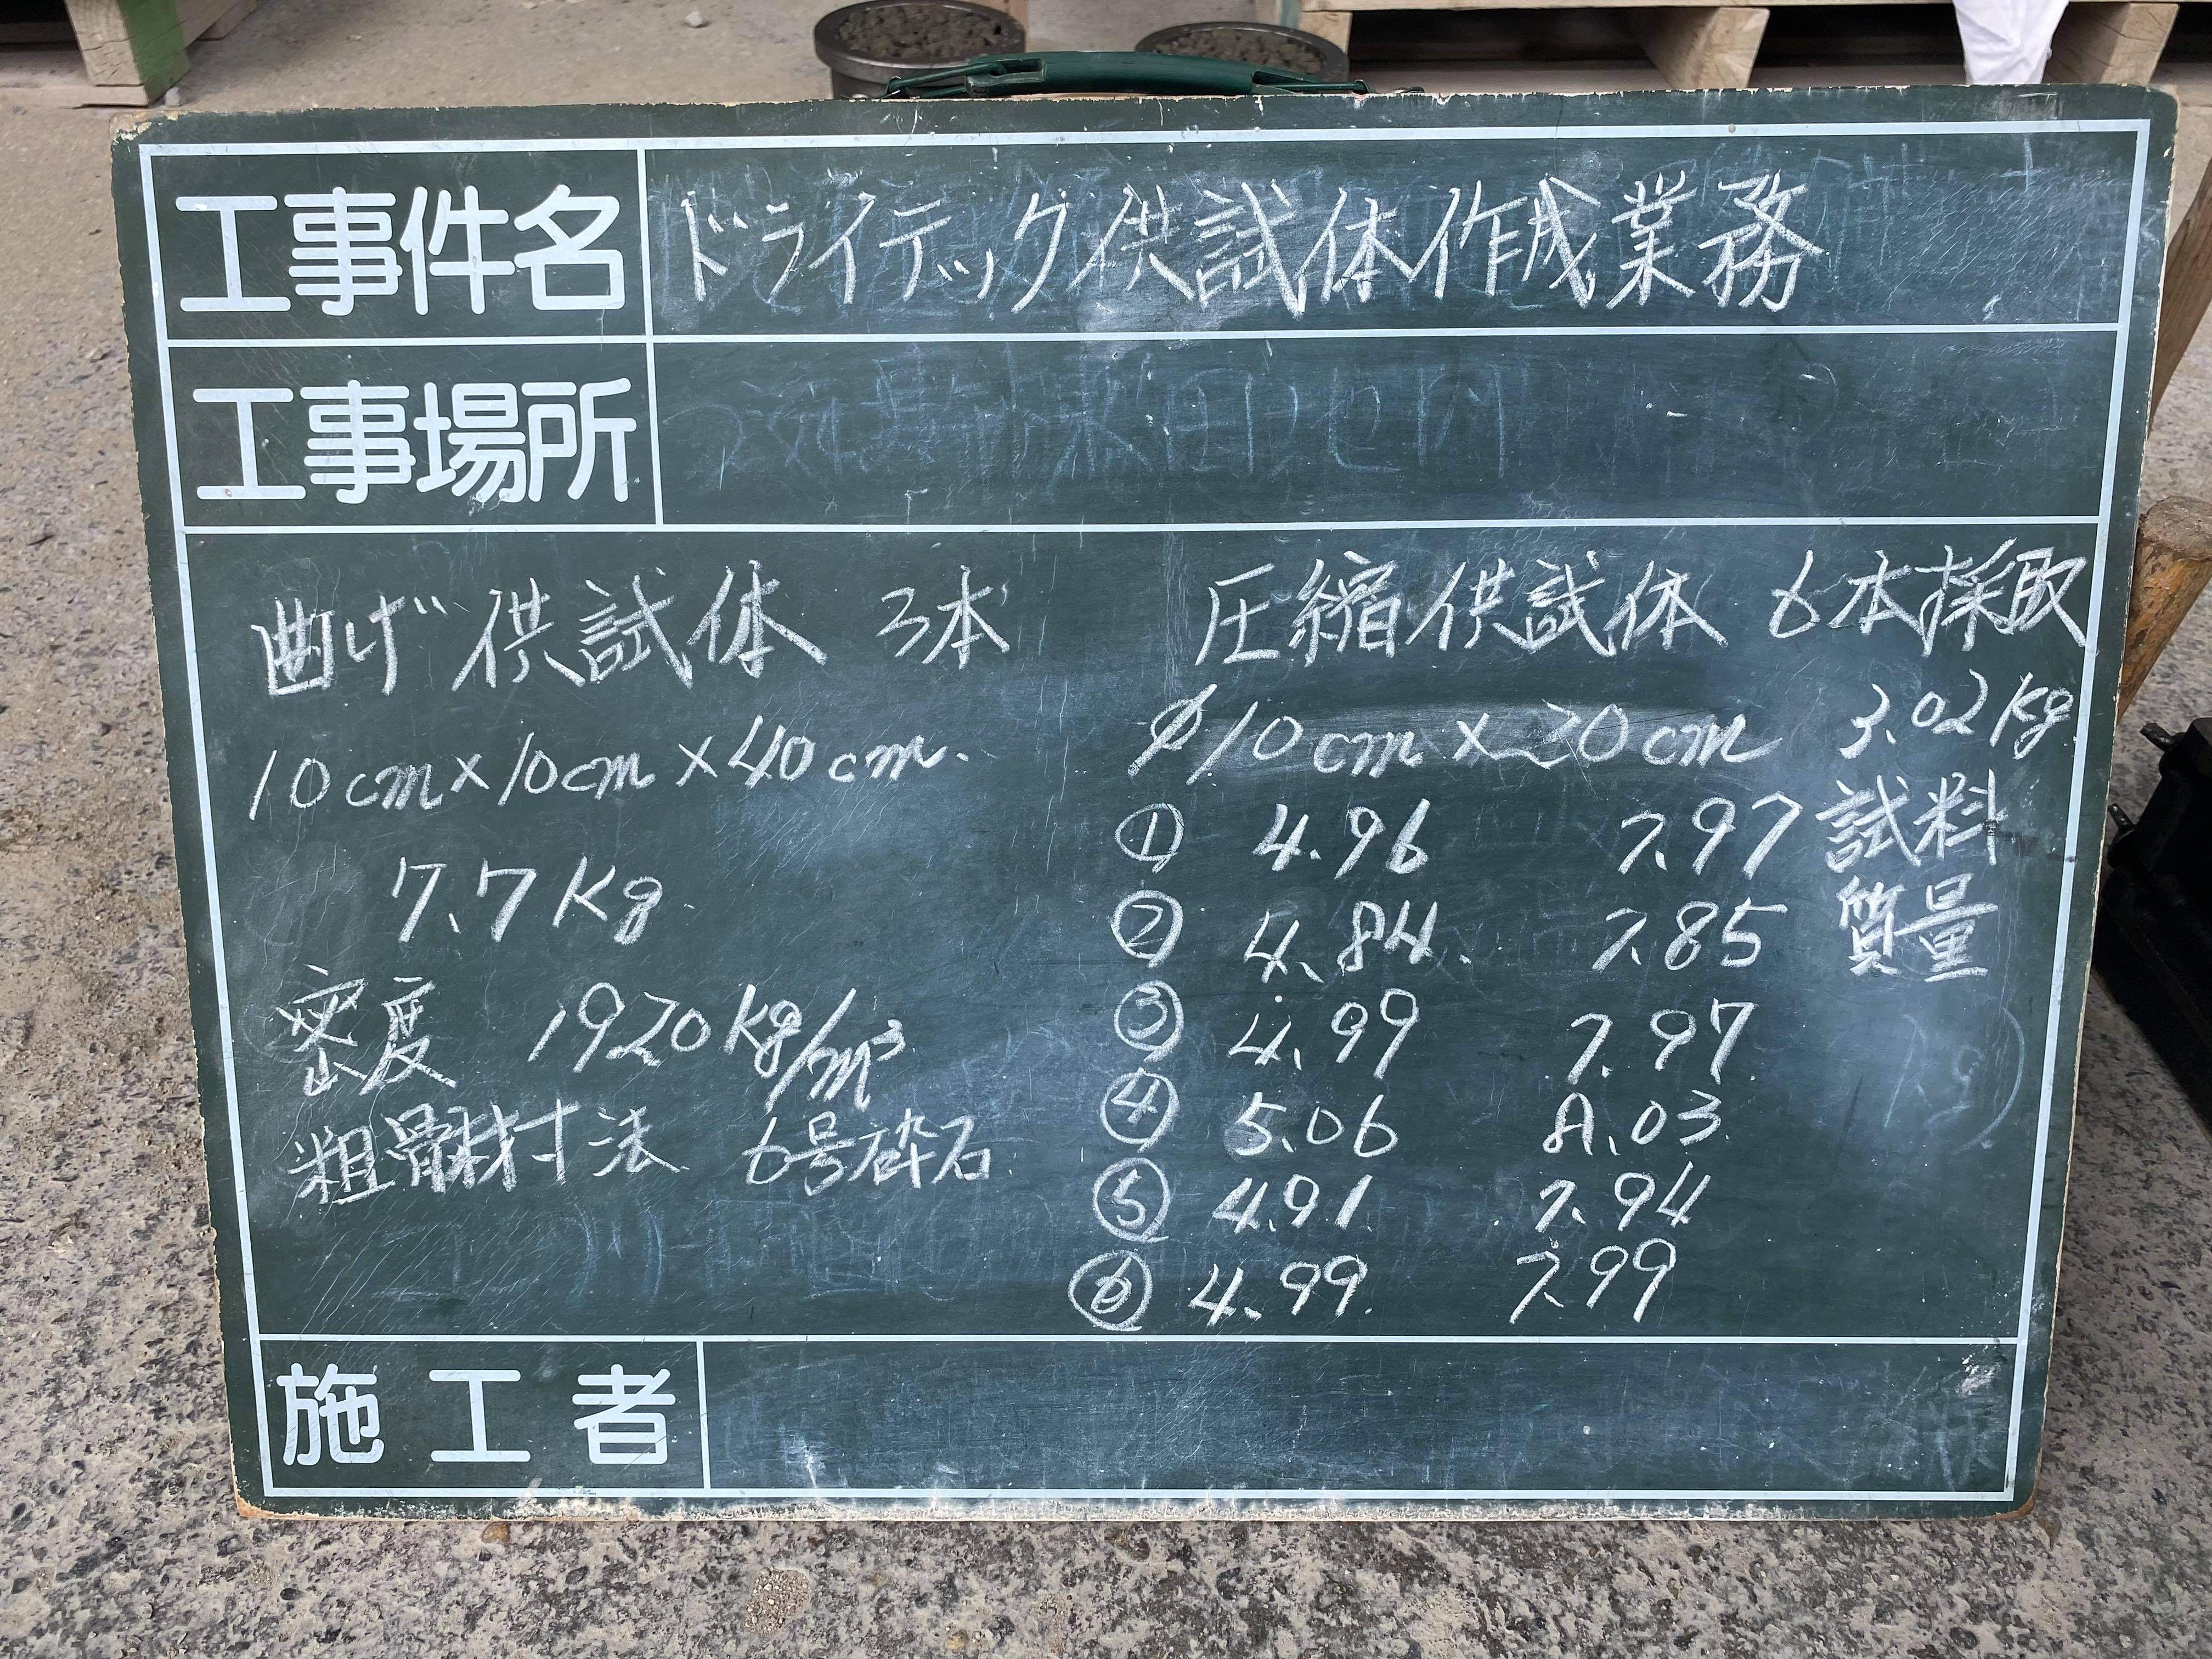 工事件名 ドライテック供試体作成業務
工事場所
曲げ供試体 3本
10cm×10cm×40cm.
7.7Kg
密度 1920kg/m³
粗骨材寸法 6号砕石
圧縮供試体 6本採取
φ10cm×20cm 3.02kg
① 4.96 7.97 試料
② 4.84. 7.85 質量
③ 4.99 7.97
④ 5.06 8.03
⑤ 4.91 7.94
⑥ 4.99 7.99
施工者